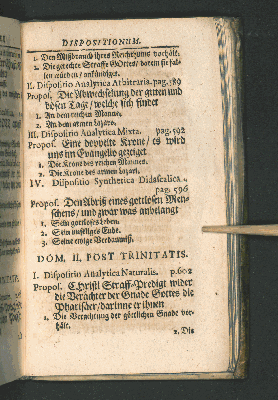 DISPOSITIONUM.
1. Den Mißbrauch ihres Reichthums vorhält.
2. Die gerechte Straffe Gottes / darein sie fal-
len würden / ankündiget.
II. Dispositio Analytica Arbitraria. pag. 589
Propos. Die Abwechselung der guten und
bösen Tage / welche sich findet
1. An dem reichen Manne.
2. An dem armen Lazaro.
III. Dispositio Analytica Mixta. pag. 592
Propos. Eine doppelte Krone / es wird
uns im Evangelio gezeiget
1. Die Krone des reichen Mannes.
2. Die Krone des armen Lazari.
IV. Dispositio Synthetica Didascalica.
pag. 596
Propos. Den Abriß eines gottlosen Men-
schens / und zwar was anbelangt
1. Sein gottloses Leben.
2. Sein unseliges Ende.
3. Seine ewige Verdamniß.
DOM. II. POST TRINITATIS.
I. Dispositio Analytica Naturalis. p. 602
Propos. Christi Straff-Predigt wider
die Verächter der Gnade Gottes die
Pharisäer / darinne er ihnen
1. Die Verachtung der göttlichen Gnade vor-
hält.
2. Die